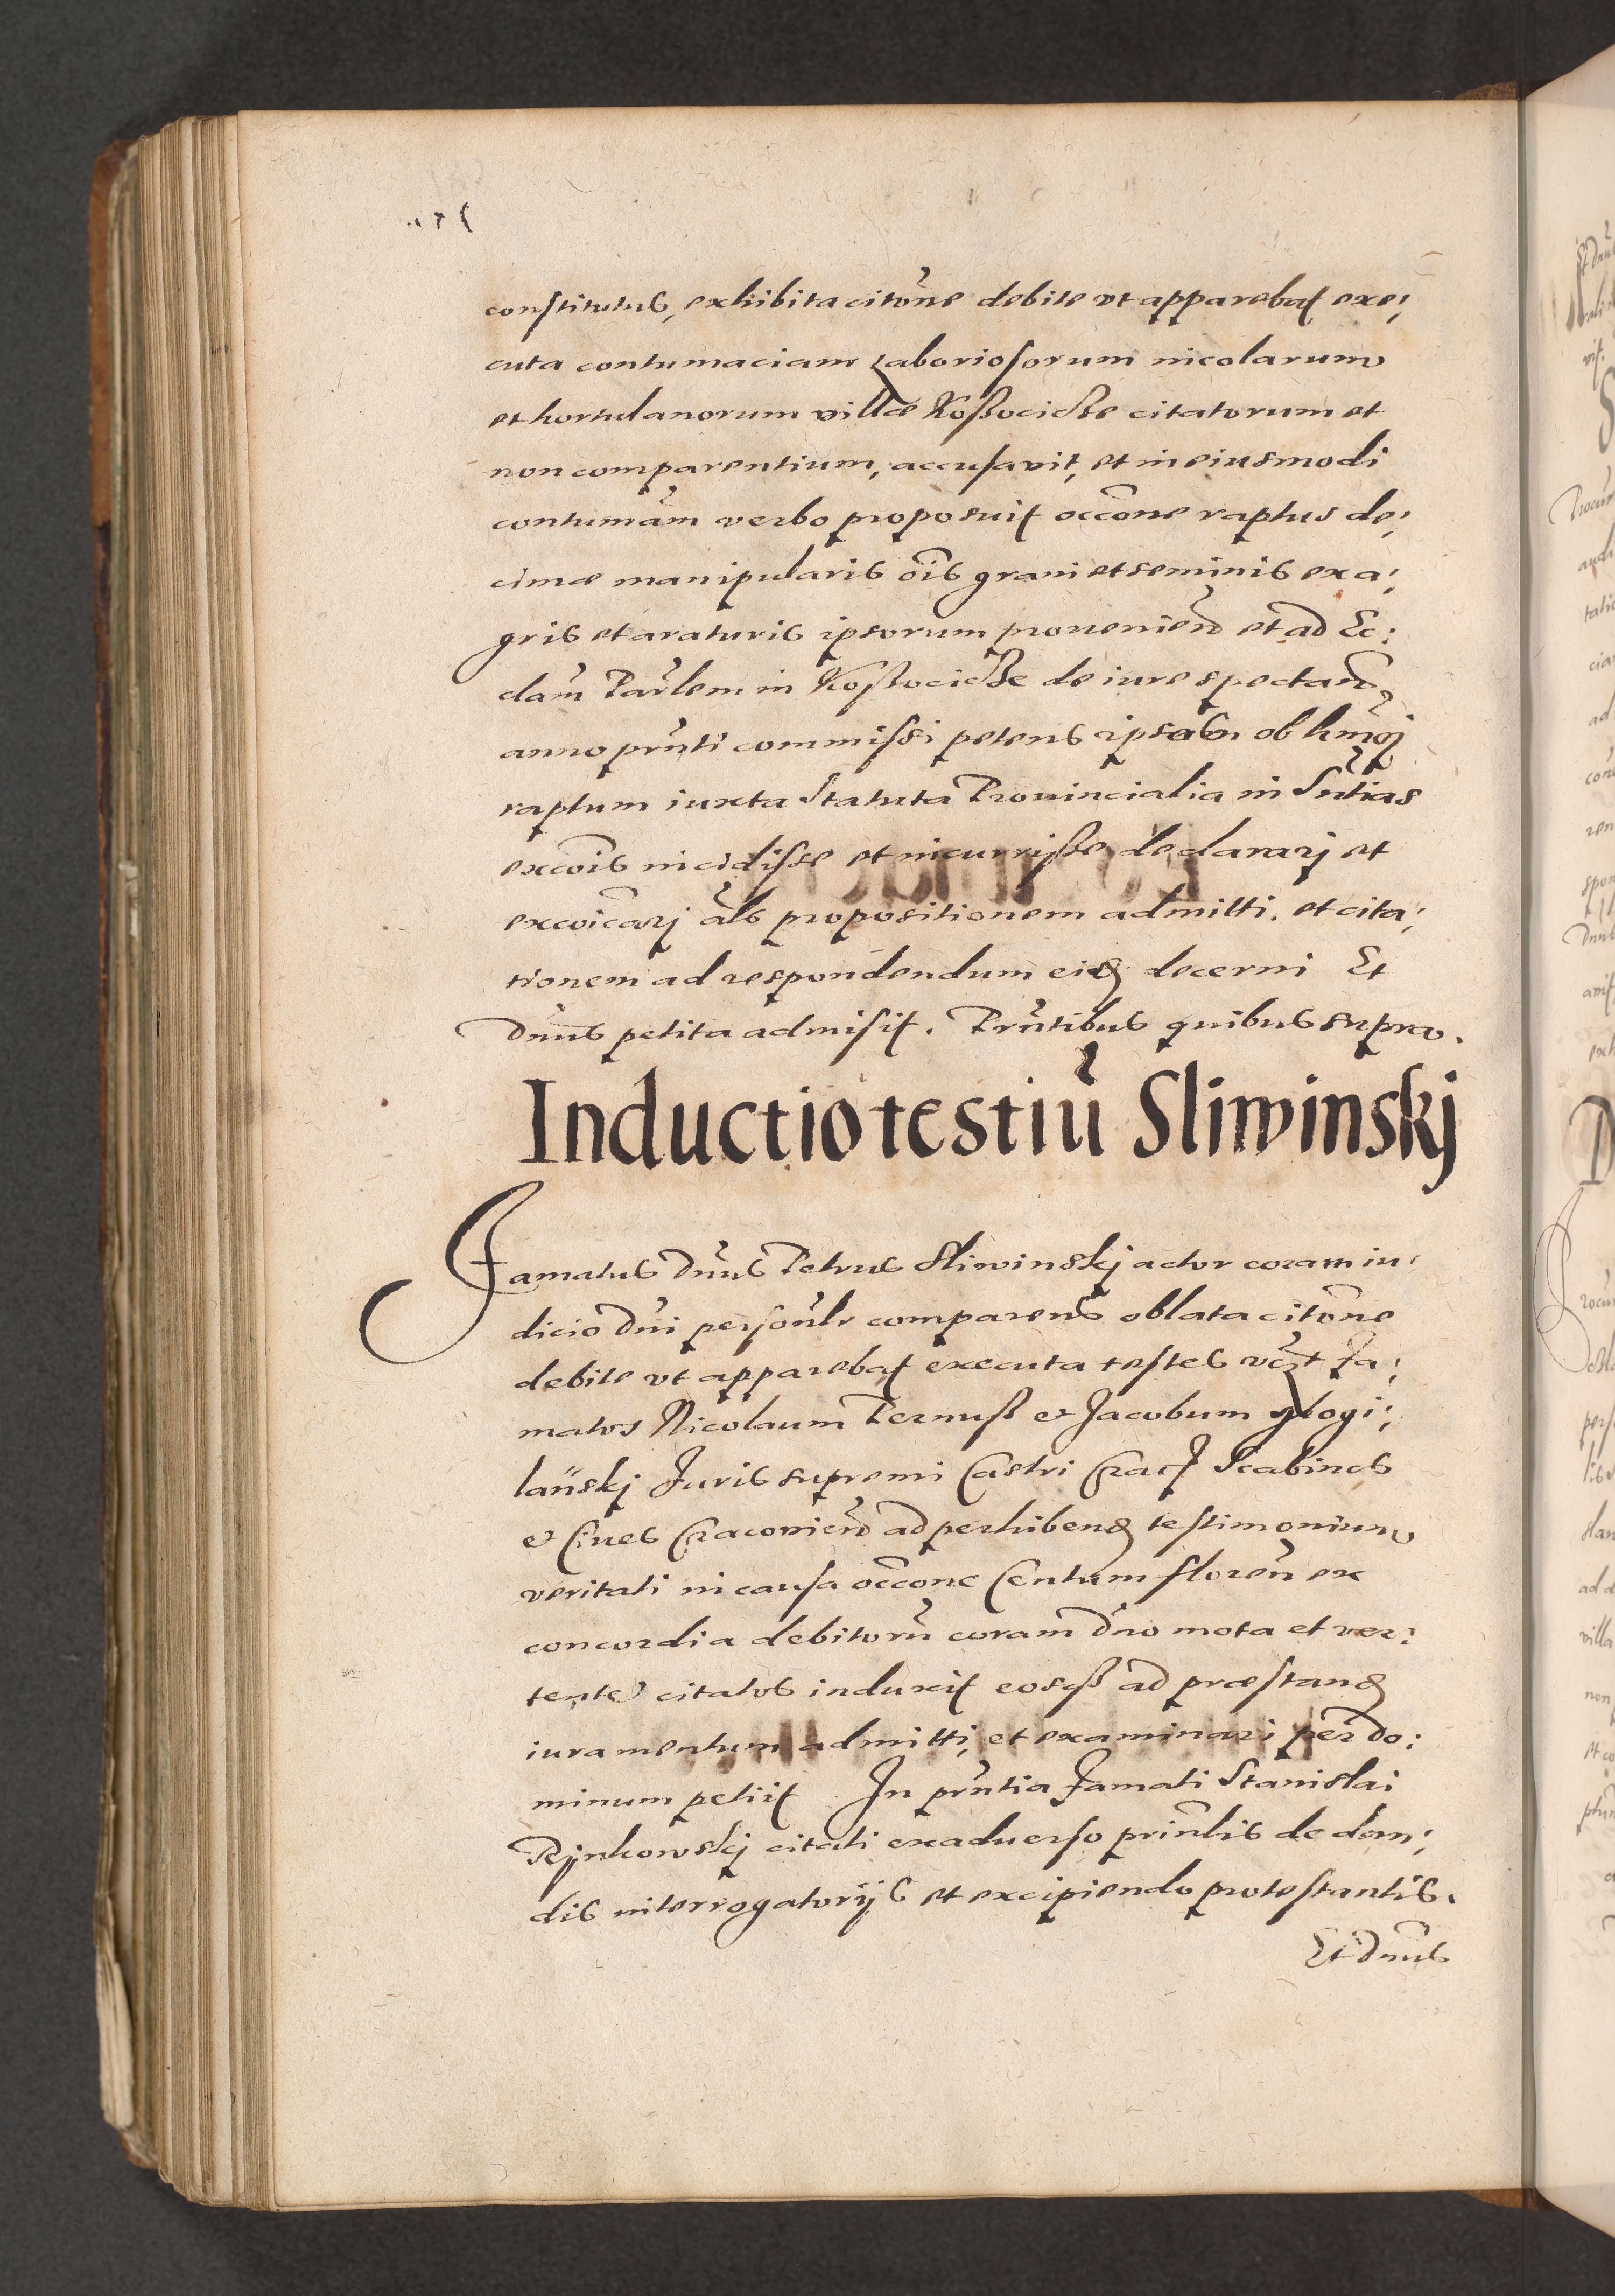 constitutus, exhibita citõne debite vt apparebat exe¡
cuta contumaciam Laboriosorum incolarum
et hortulanorum villæ Koßocicße citatorum et
non comparentium, accusavit, et in eiusmodi
contumãm verbo proposuit occõne raptus de¡
cimæ manipularis õis grani et seminis ex a¡
gris et araturis ipsorum prouenieñ et ad Ec:
clam Parlem in Koßocicße de iure spectañ
anno prñti commissi petens ipsos ob hmõj
raptum iuxta Statuta Prouincialia in Sñtias
excõis incidisse et incurrisse declararj et
excoicarj als propositionem admitti. et cita¡
tionem ad respondendum eidem decerni Et
Dnus petita admisit. Prñtibus quibus supra.
Inductio testiũ Sliwinskj
Famatus Dnus Petrus Sliwinskj actor coram iu¡
dicio Dni personlr comparens oblata citõne
debite vt apparebat executa testes vczt Fa¡
matos Nicolaum Pernuß et Jacobum
Juris supremi Castri Crac Scabinos
et Ciues Cracouieñ ad perhibend testimonium
veritati in causa occõne Centum floreñ ex
concordia debitorũ coram Dno mota et ver¡
tente citatos induxit eosqß ad præstand
iuramentum admitti, et examinari per do:
minum petiit In prñtia Famati Stanislai
Rynkowskj citati ex aduerso prinlis de dan¡
dis interrogatorijs et excipiendo protestantis.
Et Dnus